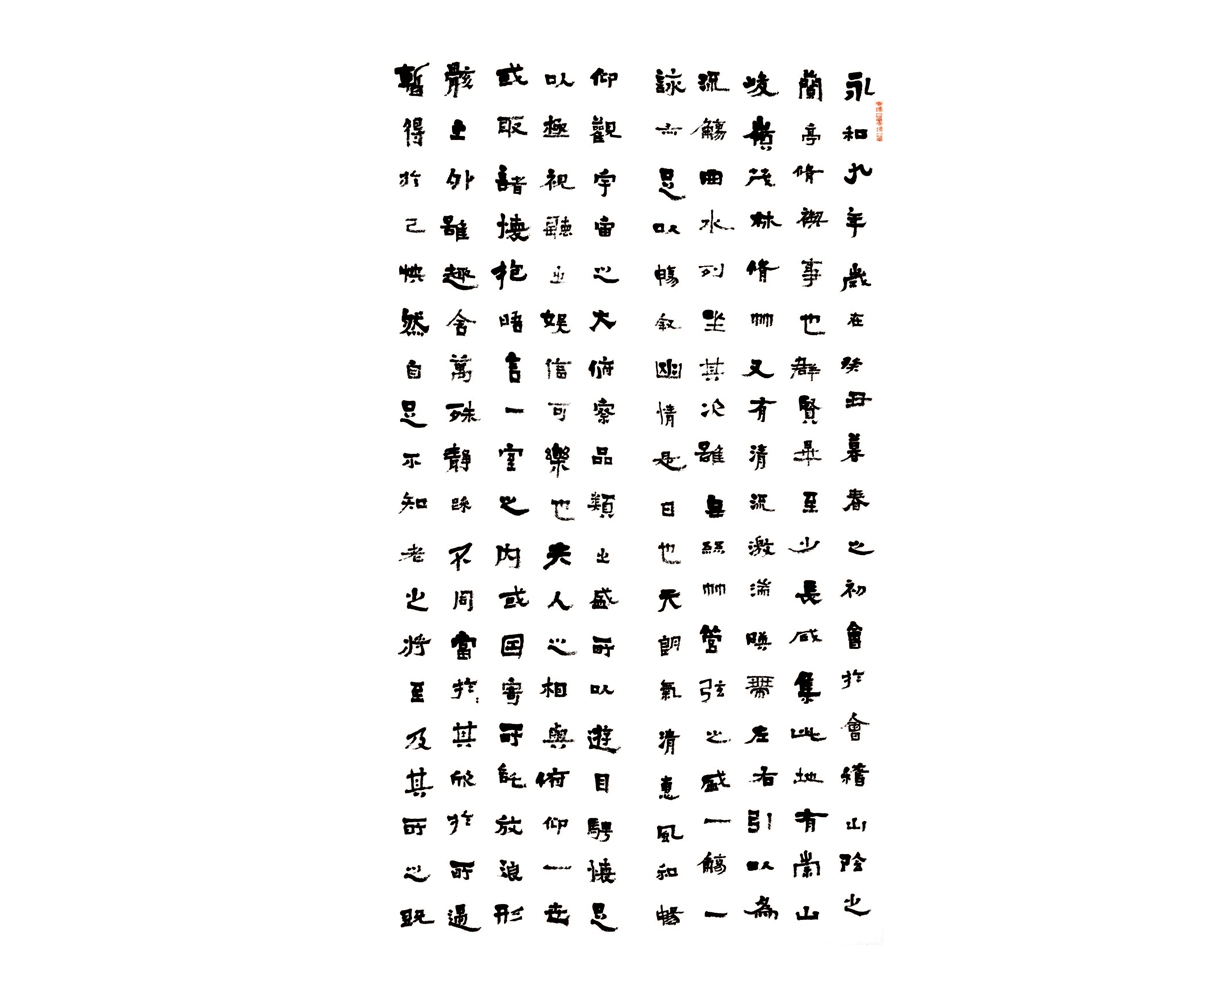 永和九年歲在癸丑暮春之初會於會稽山陰之
蘭亭脩禊事也群賢畢至少長咸集此地有崇山
峻嶺茂林脩竹又有清流激湍暎帶左右引以為
流觴曲水列坐其次雖無絲竹管弦之盛一觴一
詠亦足以暢叙幽情是日也天朗氣清惠風和暢
仰觀宇宙之大俯察品類之盛所以遊目騁懷足
以極視聽之娛信可樂也夫人之相與俯仰一世
或取諸懷抱晤言一室之內或因寄所託放浪形
骸之外雖趣舍萬殊靜躁不同當於其欣於所遇
暫得於己怏然自足不知老之將至及其所之既